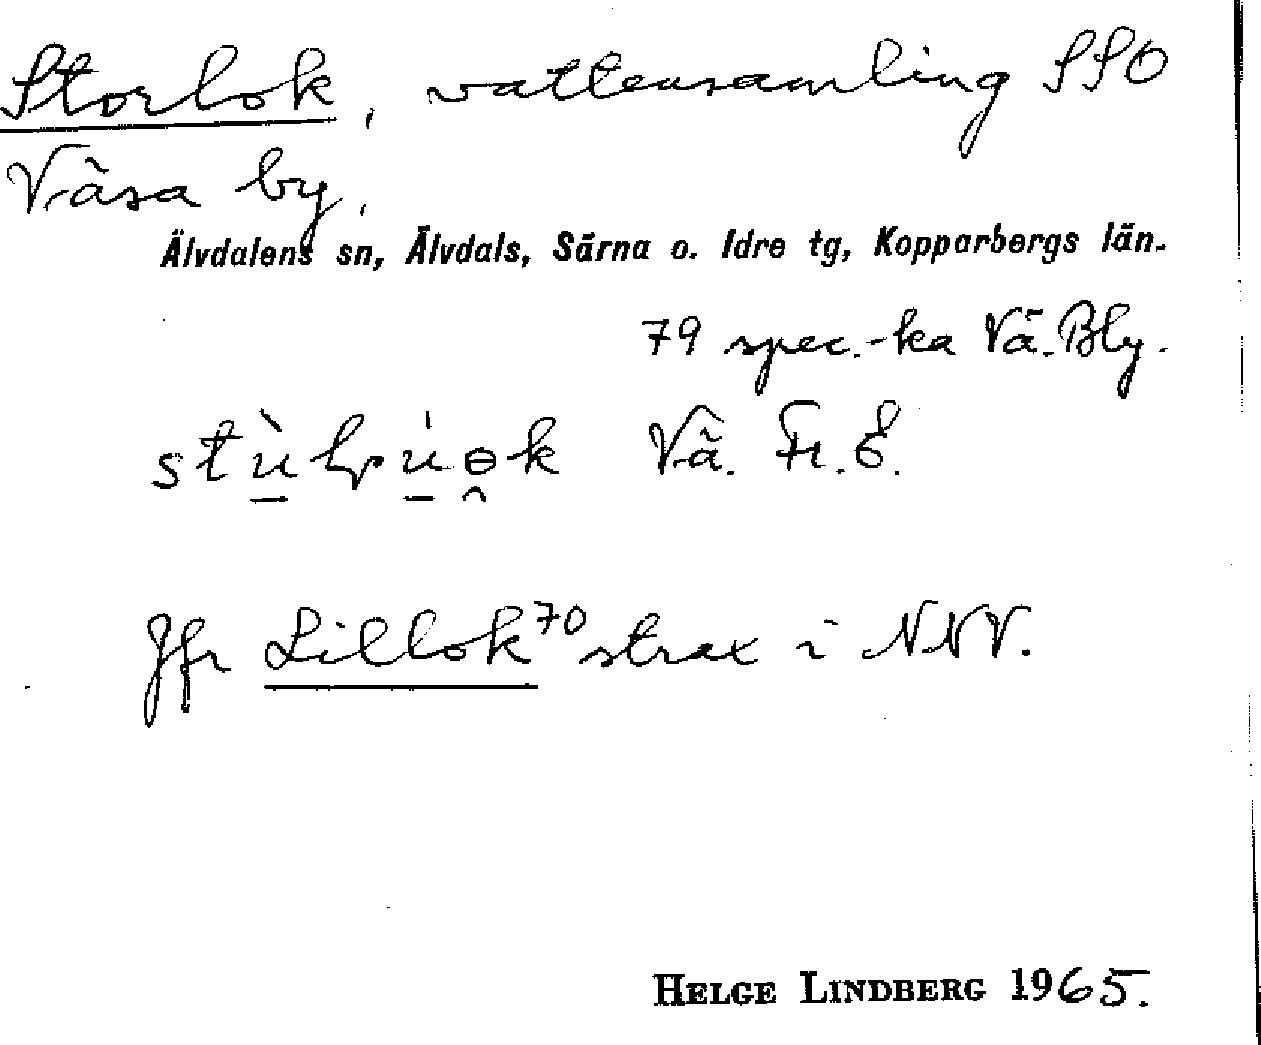 Storlok, vattensamling SSO
Väsa by.
Älvdalens sn, Älvdals, Särna o. Idre tg, Kopparbergs län.
79 spec.-ka Vä. Bly.
Vä. Fr. E.
Jfr Lillok 70 strax i NNV.
HELGE LINDBERG 1965.